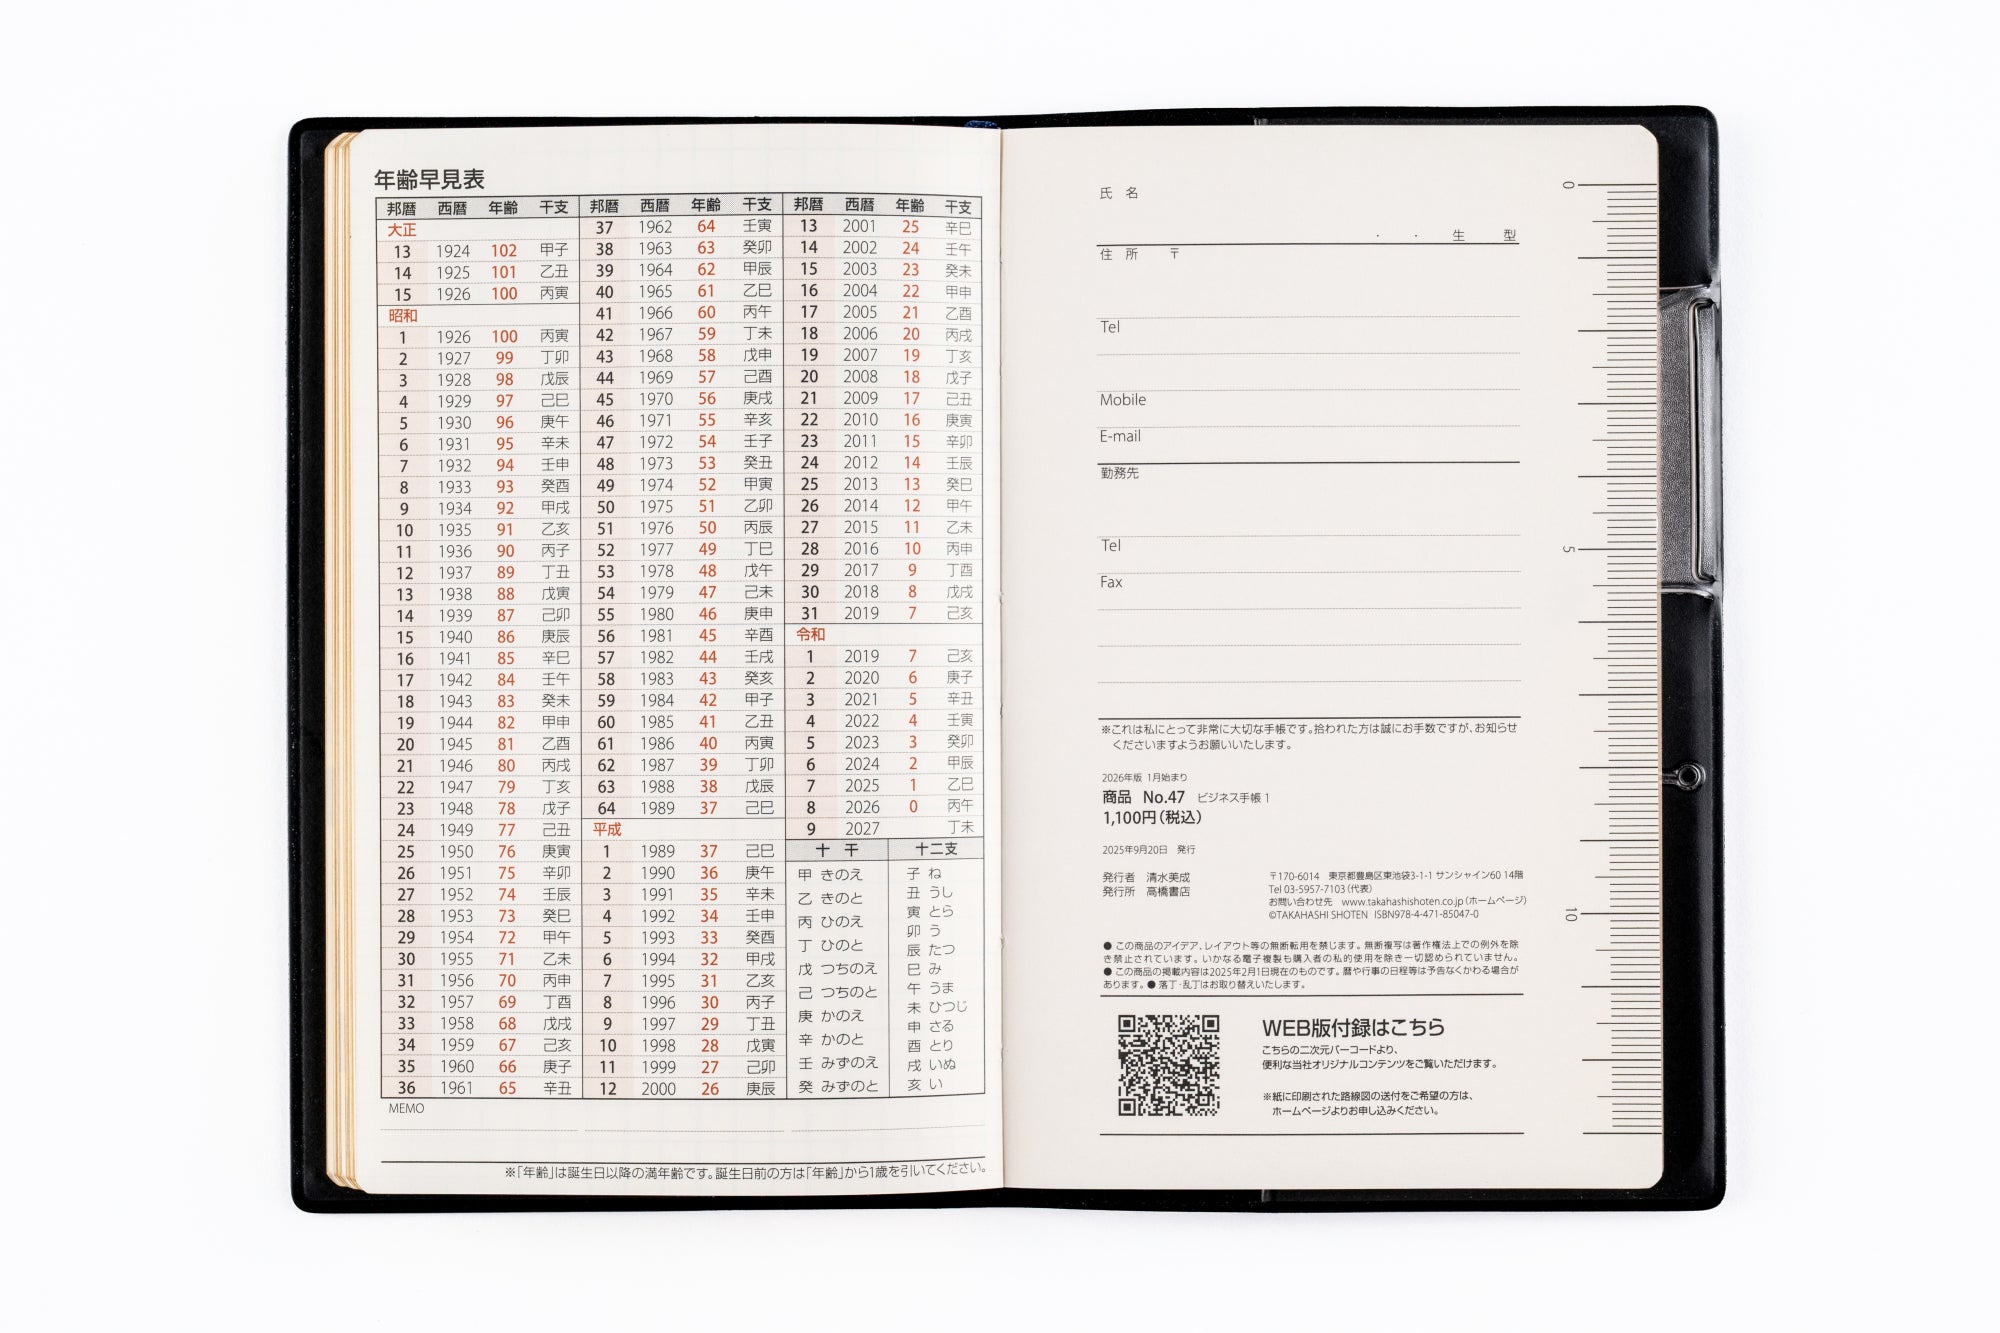 年齢早見表
邦暦 西暦 年齢 干支
大正
13 1924 102 甲子
14 1925 101 乙丑
15 1926 100 丙寅
昭和
1 1926 100 丙寅
2 1927 99 丁卯
3 1928 98 戊辰
4 1929 97 己巳
5 1930 96 庚午
6 1931 95 辛未
7 1932 94 壬申
8 1933 93 癸酉
9 1934 92 甲戌
10 1935 91 乙亥
11 1936 90 丙子
12 1937 89 丁丑
13 1938 88 戊寅
14 1939 87 己卯
15 1940 86 庚辰
16 1941 85 辛巳
17 1942 84 壬午
18 1943 83 癸未
19 1944 82 甲申
20 1945 81 乙酉
21 1946 80 丙戌
22 1947 79 丁亥
23 1948 78 戊子
24 1949 77 己丑
25 1950 76 庚寅
26 1951 75 辛卯
27 1952 74 壬辰
28 1953 73 癸巳
29 1954 72 甲午
30 1955 71 乙未
31 1956 70 丙申
32 1957 69 丁酉
33 1958 68 戊戌
34 1959 67 己亥
35 1960 66 庚子
36 1961 65 辛丑
邦暦 西暦 年齢 干支
37 1962 64 壬寅
38 1963 63 癸卯
39 1964 62 甲辰
40 1965 61 乙巳
41 1966 60 丙午
42 1967 59 丁未
43 1968 58 戊申
44 1969 57 己酉
45 1970 56 庚戌
46 1971 55 辛亥
47 1972 54 壬子
48 1973 53 癸丑
49 1974 52 甲寅
50 1975 51 乙卯
51 1976 50 丙辰
52 1977 49 丁巳
53 1978 48 戊午
54 1979 47 己未
55 1980 46 庚申
56 1981 45 辛酉
57 1982 44 壬戌
58 1983 43 癸亥
59 1984 42 甲子
60 1985 41 乙丑
61 1986 40 丙寅
62 1987 39 丁卯
63 1988 38 戊辰
64 1989 37 己巳
平成
1 1989 37 己巳
2 1990 36 庚午
3 1991 35 辛未
4 1992 34 壬申
5 1993 33 癸酉
6 1994 32 甲戌
7 1995 31 乙亥
8 1996 30 丙子
9 1997 29 丁丑
10 1998 28 戊寅
11 1999 27 己卯
12 2000 26 庚辰
邦暦 西暦 年齢 干支
13 2001 25 辛巳
14 2002 24 壬午
15 2003 23 癸未
16 2004 22 甲申
17 2005 21 乙酉
18 2006 20 丙戌
19 2007 19 丁亥
20 2008 18 戊子
21 2009 17 己丑
22 2010 16 庚寅
23 2011 15 辛卯
24 2012 14 壬辰
25 2013 13 癸巳
26 2014 12 甲午
27 2015 11 乙未
28 2016 10 丙申
29 2017 9 丁酉
30 2018 8 戊戌
31 2019 7 己亥
令和
1 2019 7 己亥
2 2020 6 庚子
3 2021 5 辛丑
4 2022 4 壬寅
5 2023 3 癸卯
6 2024 2 甲辰
7 2025 1 乙巳
8 2026 0 丙午
9 2027 丁未
十干
甲 きのえ
乙 きのと
丙 ひのえ
丁 ひのと
戊 つちのえ
己 つちのと
庚 かのえ
辛 かのと
壬 みずのえ
癸 みずのと
十二支
子 ね
丑 うし
寅 とら
卯 う
辰 たつ
巳 み
午 うま
未 ひつじ
申 さる
酉 とり
戌 いぬ
亥 い
MEMO
※「年齢」は誕生日以降の満年齢です。誕生日前の方は「年齢」から1歳を引いてください。
氏 名
・ ・ 生 型
住 所 〒
Tel
Mobile
E-mail
勤務先
Tel
Fax
※これは私にとって非常に大切な手帳です。拾われた方は誠にお手数ですが、お知らせ
くださいますようお願いいたします。
2026年版 1月始まり
商品 No.47 ビジネス手帳 1
1,100円（税込）
2025年9月20日 発行
発行者 清水美成
発行所 高橋書店
〒170-6014 東京都豊島区東池袋3-1-1 サンシャイン60 14階
Tel 03-5957-7103（代表）
お問い合わせ先 www.takahashishoten.co.jp（ホームページ）
©TAKAHASHI SHOTEN ISBN978-4-471-85047-0
● この商品のアイデア、レイアウト等の無断転用を禁じます。無断複写は著作権法上での例外を除
き禁止されています。いかなる電子複製も購入者の私的使用を除き一切認められていません。
● この商品の掲載内容は2025年2月1日現在のものです。暦や行事の日程等は予告なくかわる場合が
あります。● 落丁・乱丁はお取り替えいたします。
WEB版付録はこちら
こちらの二次元バーコードより、
便利な当社オリジナルコンテンツをご覧いただけます。
※紙に印刷された路線図の送付をご希望の方は、
ホームページよりお申し込みください。
0
5
10